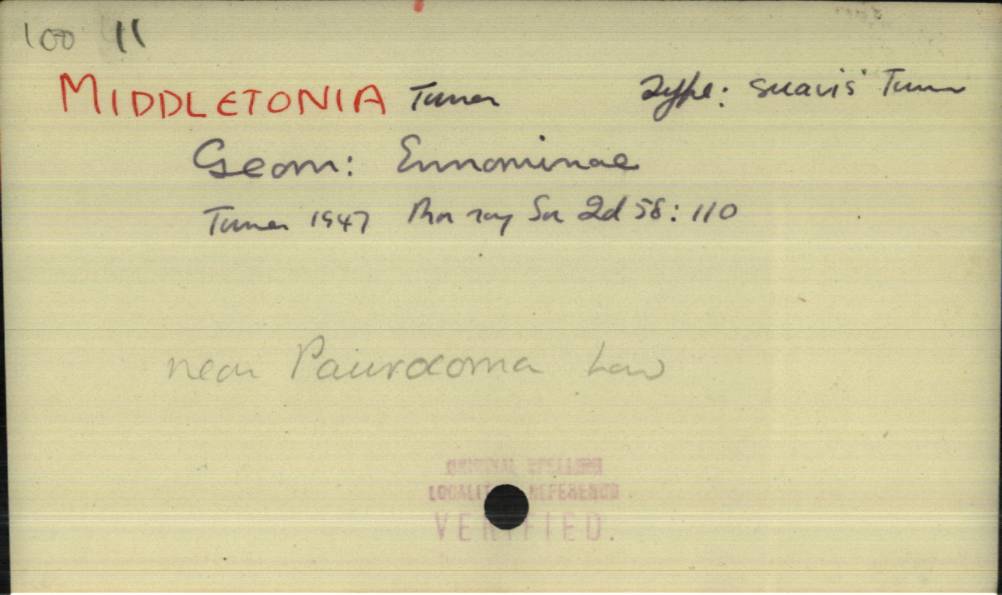 100 11
MIDDLETONIA Turner Type: suavis Turner
Geom: Ennominae
Turner 1947 Proc roy Soc Qd 58: 110
near Paurocoma Low
ORIGINAL SPELLING
LOCALITY REFERENCE
VERIFIED.